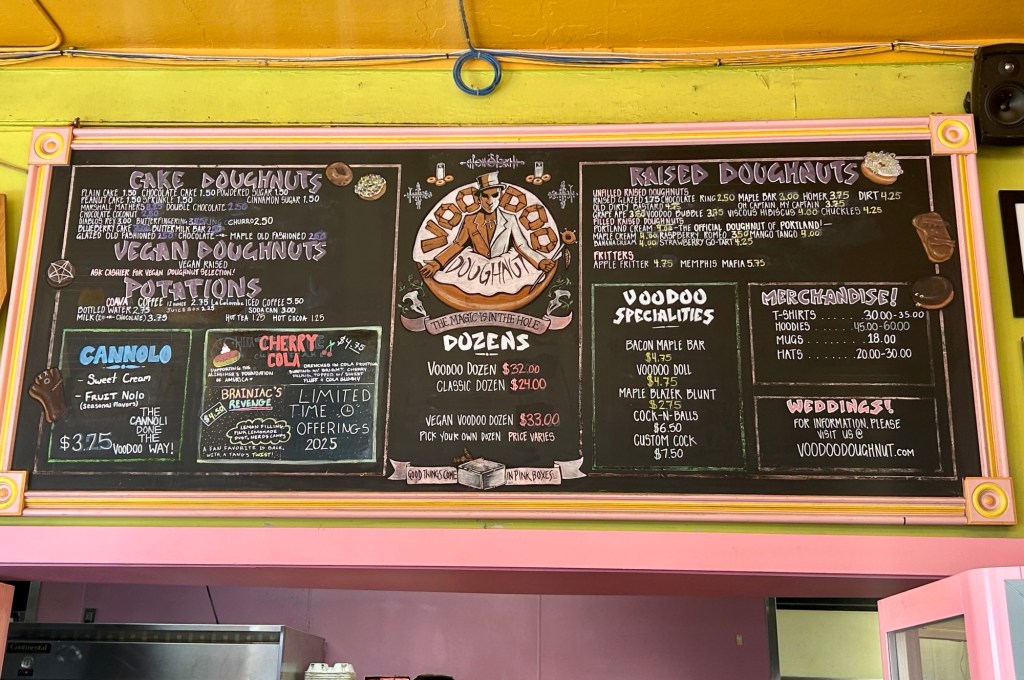 CAKE DOUGHNUTS
PLAIN CAKE 1.50 CHOCOLATE CAKE 1.50 POWDERED SUGAR 1.50
PEANUT CAKE 1.50 SPRINKLE 1.50 CINNAMON SUGAR 1.50
MARSHALL MATHERS DOUBLE CHOCOLATE 2.50
CHOCOLATE COCONUT 2.50
DIABLOS REY 3.00 BUTTERFINGERING CHURRO 2.50
BLUEBERRY CAKE BUTTERMILK BAR 2.50
GLAZED OLD FASHIONED 2.50 CHOCOLATE MAPLE OLD FASHIONED 2.50
VEGAN DOUGHNUTS
VEGAN RAISED
ASK CASHIER FOR VEGAN DOUGHNUT SELECTION!
POTATIONS
COAVA COFFEE 12 OUNCE 2.75 La Colombe ICED COFFEE 5.50
BOTTLED WATER 2.75 JUICE BOX 2.25 SODA CAN 3.00
MILK (2% OR CHOCOLATE) 3.75 HOT TEA 1.25 HOT COCOA 1.25
CANNOLO
- Sweet Cream
- Fruit Nolo
(SEASONAL FLAVORS)
$3.75
THE
CANNOLI
DONE
THE
VOODOO WAY!
CHERRY
COLA
$4.75
SUPPORTING THE
ALZHEIMER'S FOUNDATION
OF AMERICA
BRAINIAC'S
REVENGE
$4.50
LEMON FILLING,
PINK LEMONADE
DUST, NERDS CANDY
A FAN FAVORITE IS BACK,
WITH A TANGY TWIST!
LIMITED
TIME
OFFERINGS
2025
VOODOO
DOUGHNUT
THE MAGIC IS IN THE HOLE
DOZENS
VOODOO DOZEN $32.00
CLASSIC DOZEN $24.00
VEGAN VOODOO DOZEN $33.00
PICK YOUR OWN DOZEN PRICE VARIES
GOOD THINGS COME IN PINK BOXES...
RAISED DOUGHNUTS
UNFILLED RAISED DOUGHNUTS
RAISED GLAZED 1.75 CHOCOLATE RING 2.50 MAPLE BAR 3.00 HOMER 3.75 DIRT 4.25
OL' DIRTY BASTARD 4.75 OH CAPTAIN MY CAPTAIN 3.75
GRAPE APE 3.50 VOODOO BUBBLE 3.75 VISCOUS HIBISCUS 4.00 CHUCKLES 4.25
FILLED RAISED DOUGHNUTS
PORTLAND CREAM 4.00 -THE OFFICIAL DOUGHNUT OF PORTLAND!-
MAPLE CREAM 4.00 RASPBERRY ROMEO 3.50 MANGO TANGO 4.00
BANANA CREAM 4.00 STRAWBERRY GO-TART 4.25
FRITTERS
APPLE FRITTER 4.75 MEMPHIS MAFIA 5.75
VOODOO
SPECIALTIES
BACON MAPLE BAR
$4.75
VOODOO DOLL
$4.75
MAPLE BLAZER BLUNT
$2.75
COCK-N-BALLS
$6.50
CUSTOM COCK
$7.50
MERCHANDISE!
T-SHIRTS ..... 30.00-35.00
HOODIES ...... 45.00-60.00
MUGS ......... 18.00
HATS ...... 20.00-30.00
WEDDINGS!
FOR INFORMATION, PLEASE
VISIT US @
VOODOODOUGHNUT.COM
Continental